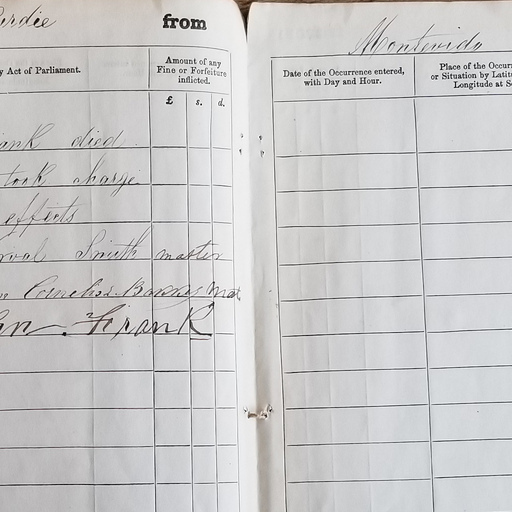 from
y Act of Parliament.
Amount of any
Fine or Forfeiture
inflicted.
£ s. d.
ank died
took charge
effects
Smith master
Cornelius Mat
Frank
Montevido
Date of the Occurrence entered,
with Day and Hour.
Place of the Occurr
or Situation by Latitu
Longitude at Se